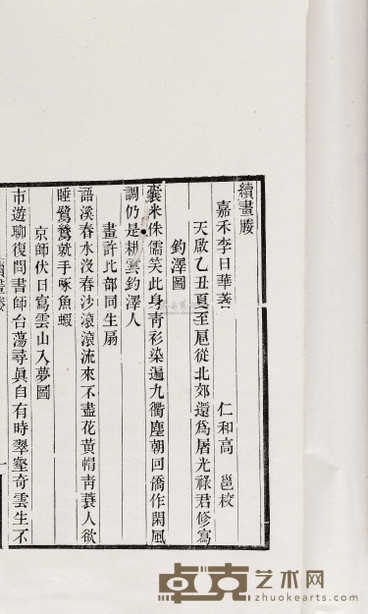 續畫賸
嘉禾李日華著 仁和高邕校
天啟乙丑夏至扈從北郊還為屠光祿君修寫
釣澤圖
囊米侏儒笑此身靑衫染遍九衢塵朝回僑作閑風
調仍是耕雲釣澤人
畫許比部同生扇
語溪春水沒春沙滾滾流來不盡花黃帽靑蓑人欲
睡鷺鶿就手啄魚蝦
京師伏日寫雲山入夢圖
市遊聊復問書師台蕩尋眞自有時翠壑奇雲生不
續畫賸
一
卓克艺术网
www.zhuokearts.com